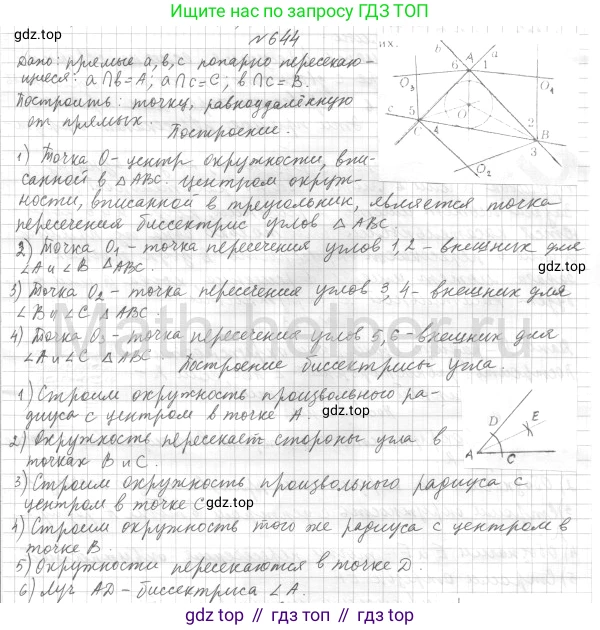 Ищите ещё по запросу ГДЗ ТОП
№644
Дано: прямые a, b, c попарно пересекаю-
щиеся: a∩b=A; a∩c=C; b∩c=B.
Построить: точку, равноудалённую
от прямых.
Построение.
их.
b
a
6
A
1
O₃
O₁
O
c
5
C
4
2
B
3
O₂
1) Точка O-центр окружности, впи-
санной в △ABC. Центром окруж-
ности, вписанной в треугольник, является точка
пересечения биссектрис углов △ABC.
2) Точка O₁ - точка пересечения углов 1,2 - внешних для
∠A и ∠B △ABC.
gdz top
3) Точка O₂ - точка пересечения углов 3, 4- внешних для
∠B и ∠C △ABC.
gdz.top
4) Точка O₃ - точка пересечения углов 5,6-внешних для
∠A и ∠C △ABC.
Построение биссектрисы угла.
MathHelper.ru
1) Строим окружность произвольного ра-
диуса с центром в точке A.
gdz top
2) Окружность пересекает стороны угла в
точках B и C.
A
D
E
C
3) Строим окружность произвольного радиуса с
центром в точке C
gdz top
4) Строим окружность того же радиуса с центром в
точке B.
5) Окружности пересекаются в точке D.
6) Луч AD-биссектриса ∠A.
gdz top
gdz top // gdz top // gdz.top // gdz.top